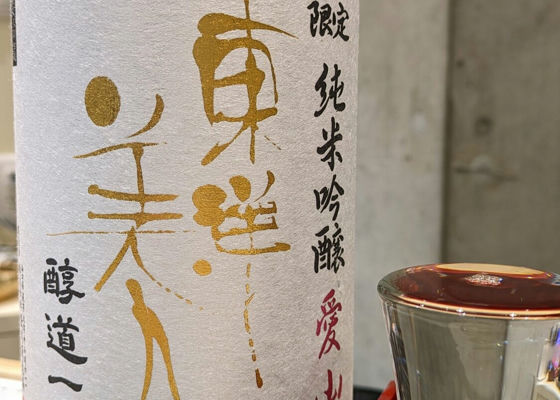 限定
純米吟醸 愛山
東洋
美人
醇道一